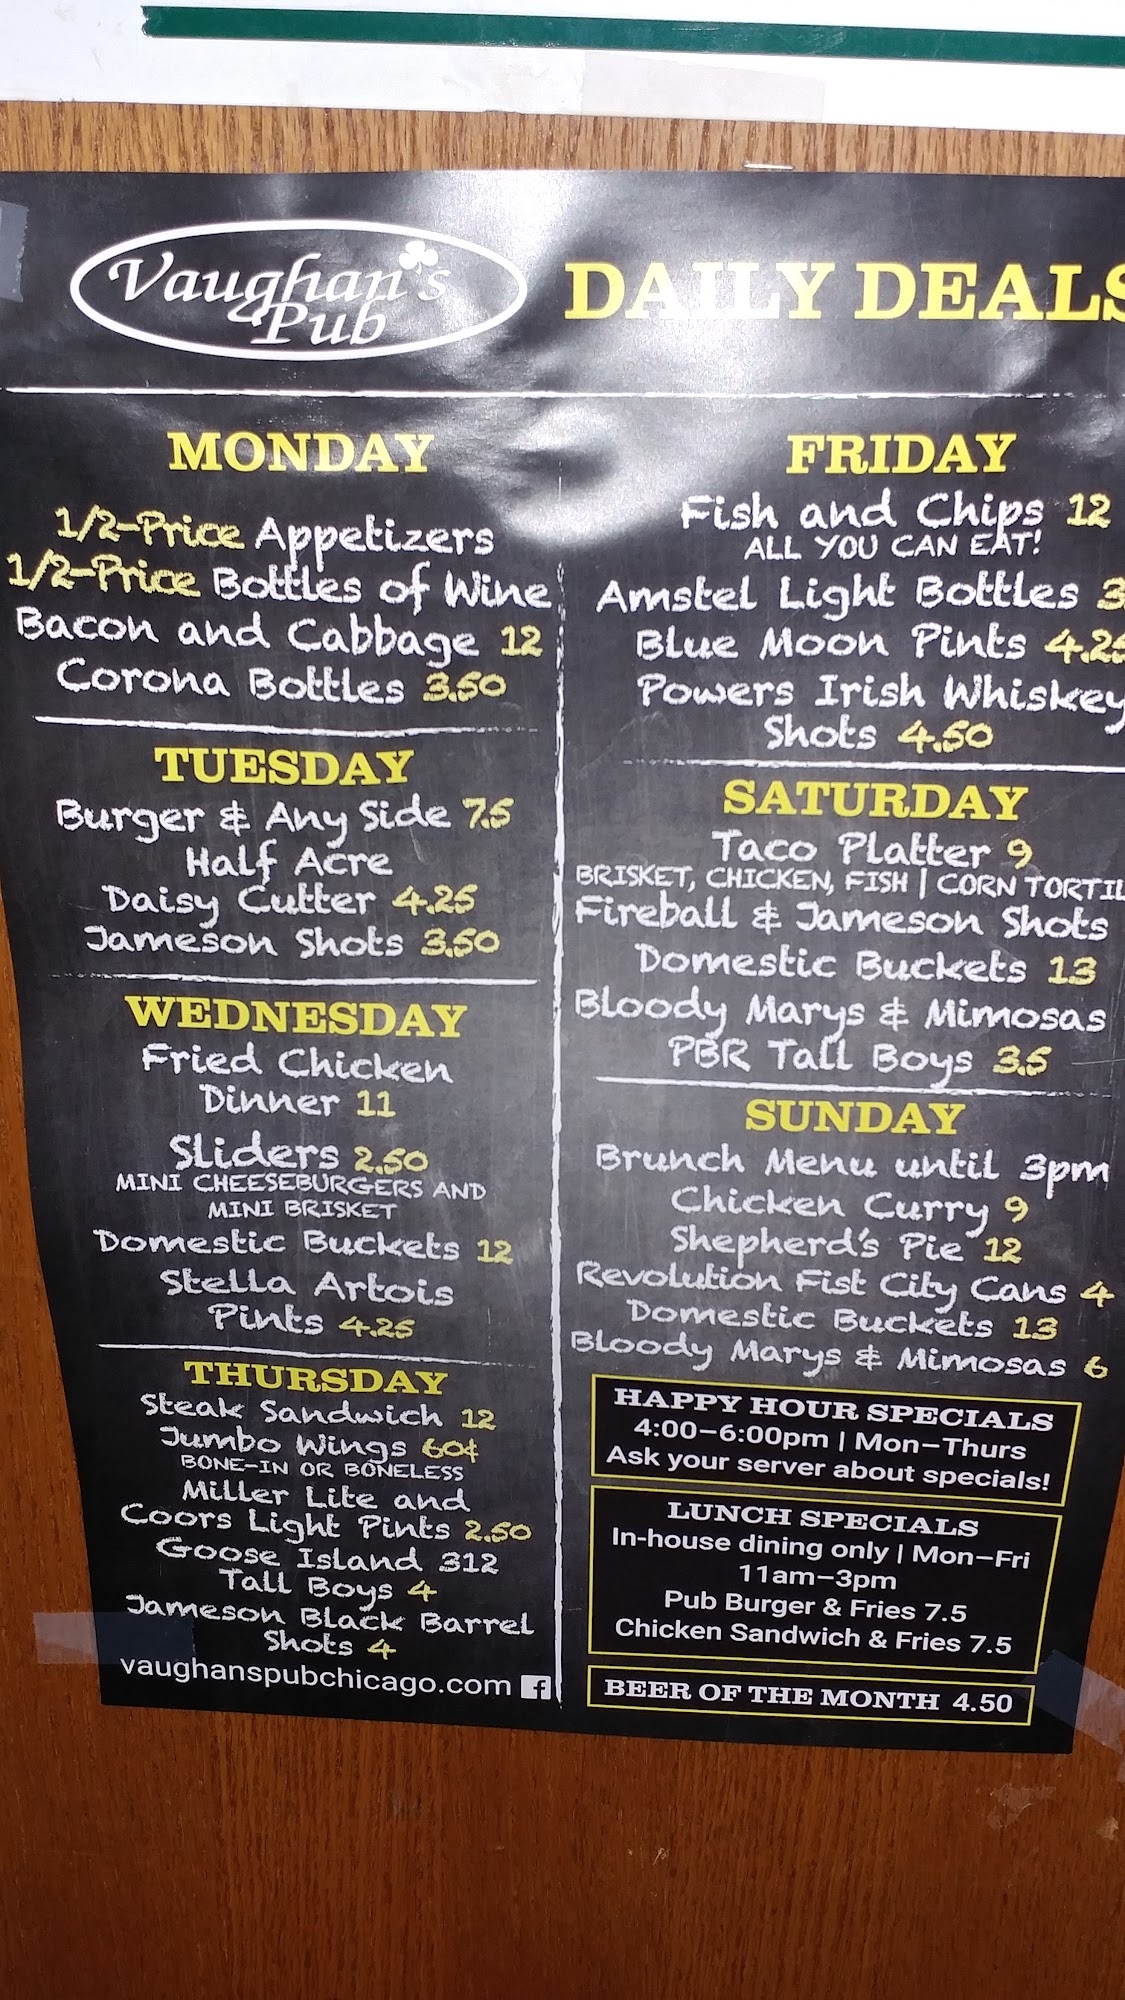 Vaughan's
Pub
DAILY DEALS
MONDAY
1/2-Price Appetizers
1/2-Price Bottles of Wine
Bacon and Cabbage 12
Corona Bottles 3.50
TUESDAY
Burger & Any Side 7.5
Half Acre
Daisy Cutter 4.25
Jameson Shots 3.50
WEDNESDAY
Fried Chicken
Dinner 11
Sliders 2.50
MINI CHEESEBURGERS AND
MINI BRISKET
Domestic Buckets 12
Stella Artois
Pints 4.25
THURSDAY
Steak Sandwich 12
Jumbo Wings 60¢
BONE-IN OR BONELESS
Miller Lite and
Coors Light Pints 2.50
Goose Island 312
Tall Boys 4
Jameson Black Barrel
Shots 4
vaughanspubchicago.com f
FRIDAY
Fish and Chips 12
ALL YOU CAN EAT!
Amstel Light Bottles
Blue Moon Pints 4.25
Powers Irish Whiskey
Shots 4.50
SATURDAY
Taco Platter 9
BRISKET, CHICKEN, FISH | CORN TORTIL
Fireball & Jameson Shots
Domestic Buckets 13
Bloody Marys & Mimosas
PBR Tall Boys 3.5
SUNDAY
Brunch Menu until 3pm
Chicken Curry 9
Shepherd's Pie 12
Revolution Fist City Cans 4
Domestic Buckets 13
Bloody Marys & Mimosas 6
HAPPY HOUR SPECIALS
4:00–6:00pm | Mon–Thurs
Ask your server about specials!
LUNCH SPECIALS
In-house dining only | Mon–Fri
11am–3pm
Pub Burger & Fries 7.5
Chicken Sandwich & Fries 7.5
BEER OF THE MONTH 4.50